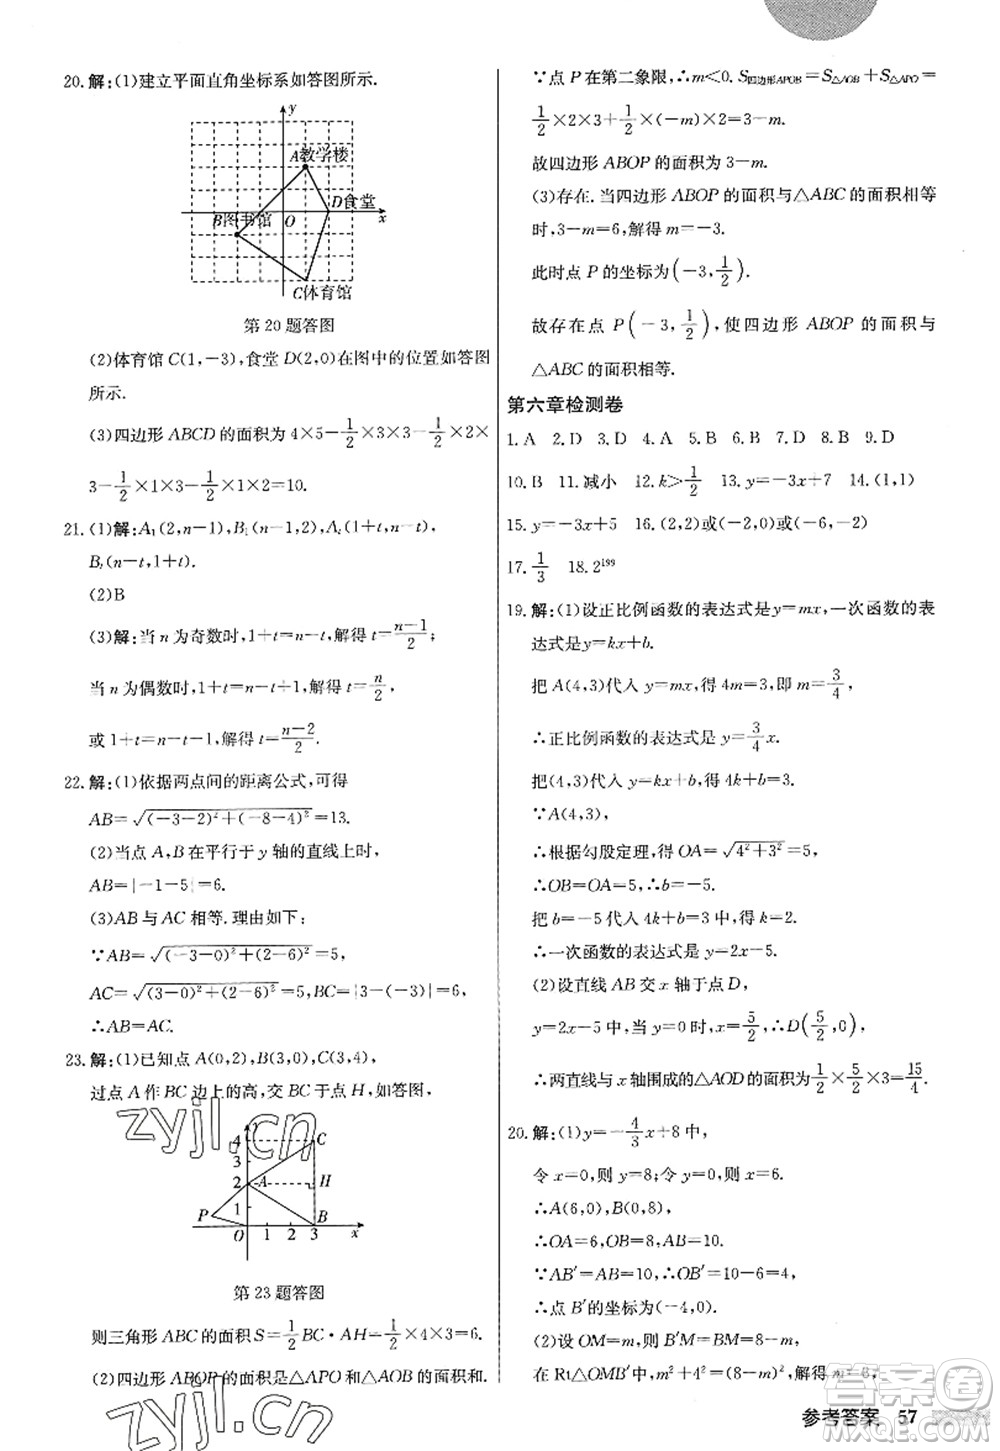 20. 解:(1)建立平面直角坐标系如答图所示.
y
A教学楼
D食堂
B图书馆
O
x
C体育馆
第20题答图
(2)体育馆 C(1,-3),食堂 D(2,0)在图中的位置如答图
所示.
(3)四边形 ABCD 的面积为 4×5-1/2×3×3-1/2×2×
3-1/2×1×3-1/2×1×2=10.
21. (1)解:A₁(2,n-1),B₁(n-1,2),Aₜ(1+t,n-t),
Bₜ(n-t,1+t).
(2)B
(3)解:当 n 为奇数时,1+t=n-t,解得 t=(n-1)/2;
当 n 为偶数时,1+t=n-t+1,解得 t=n/2,
或 1+t=n-t-1,解得 t=(n-2)/2.
22. 解:(1)依据两点间的距离公式,可得
AB=√((-3-2)²+(-8-4)²)=13.
(2)当点 A,B 在平行于 y 轴的直线上时,
AB=|-1-5|=6.
(3)AB 与 AC 相等.理由如下:
∵AB=√((-3-0)²+(2-6)²)=5,
AC=√((3-0)²+(2-6)²)=5,BC=|3-(-3)|=6,
∴AB=AC.
23. 解:(1)已知点 A(0,2),B(3,0),C(3,4),
过点 A 作 BC 边上的高,交 BC 于点 H,如答图,
y
4
C
3
2
A
H
1
P
B
O
1 2 3
x
第23题答图
则三角形 ABC 的面积 S=1/2 BC·AH=1/2×4×3=6.
(2)四边形 ABOP 的面积是△APO 和△AOB 的面积和.
∵点 P 在第二象限,∴m<0. S四边形APOB=S△AOB+S△APO=
1/2×2×3+1/2×(-m)×2=3-m.
故四边形 ABOP 的面积为 3-m.
(3)存在.当四边形 ABOP 的面积与△ABC 的面积相等
时,3-m=6,解得 m=-3.
此时点 P 的坐标为(-3,1/2).
故存在点 P(-3,1/2),使四边形 ABOP 的面积与
△ABC 的面积相等.
第六章检测卷
1. A 2. D 3. D 4. A 5. B 6. B 7. D 8. B 9. D
10. B 11. 减小 12. k>1/2 13. y=-3x+7 14. (1,1)
15. y=-3x+5 16. (2,2)或(-2,0)或(-6,-2)
17. 1/3 18. 2¹⁹⁹
19. 解:(1)设正比例函数的表达式是 y=mx,一次函数的表
达式是 y=kx+b.
把 A(4,3)代入 y=mx,得 4m=3,即 m=3/4,
∴正比例函数的表达式是 y=3/4x.
把(4,3)代入 y=kx+b,得 4k+b=3.
∵A(4,3),
∴根据勾股定理,得 OA=√(4²+3²)=5.
∴OB=OA=5,∴b=-5.
把 b=-5 代入 4k+b=3,得 k=2.
∴一次函数的表达式是 y=2x-5.
(2)设直线 AB 交 x 轴于点 D,
y=2x-5 中,当 y=0 时,x=5/2,∴D(5/2,0),
∴两直线与 x 轴围成的△AOD 的面积为 1/2×5/2×3=15/4.
20. 解:(1)y=-4/3x+8 中,
令 x=0,则 y=8;令 y=0,则 x=6.
∴A(6,0),B(0,8),
∴OA=6,OB=8,AB=10.
∵AB′=AB=10,∴OB′=10-6=4,
∴点 B′的坐标为(-4,0).
(2)设 OM=m,则 B′M=BM=8-m,
在 Rt△OMB′中,m²+4²=(8-m)²,解得 m=3,
参考答案 57
zyjl.cn
zyjl.cn
答案圈